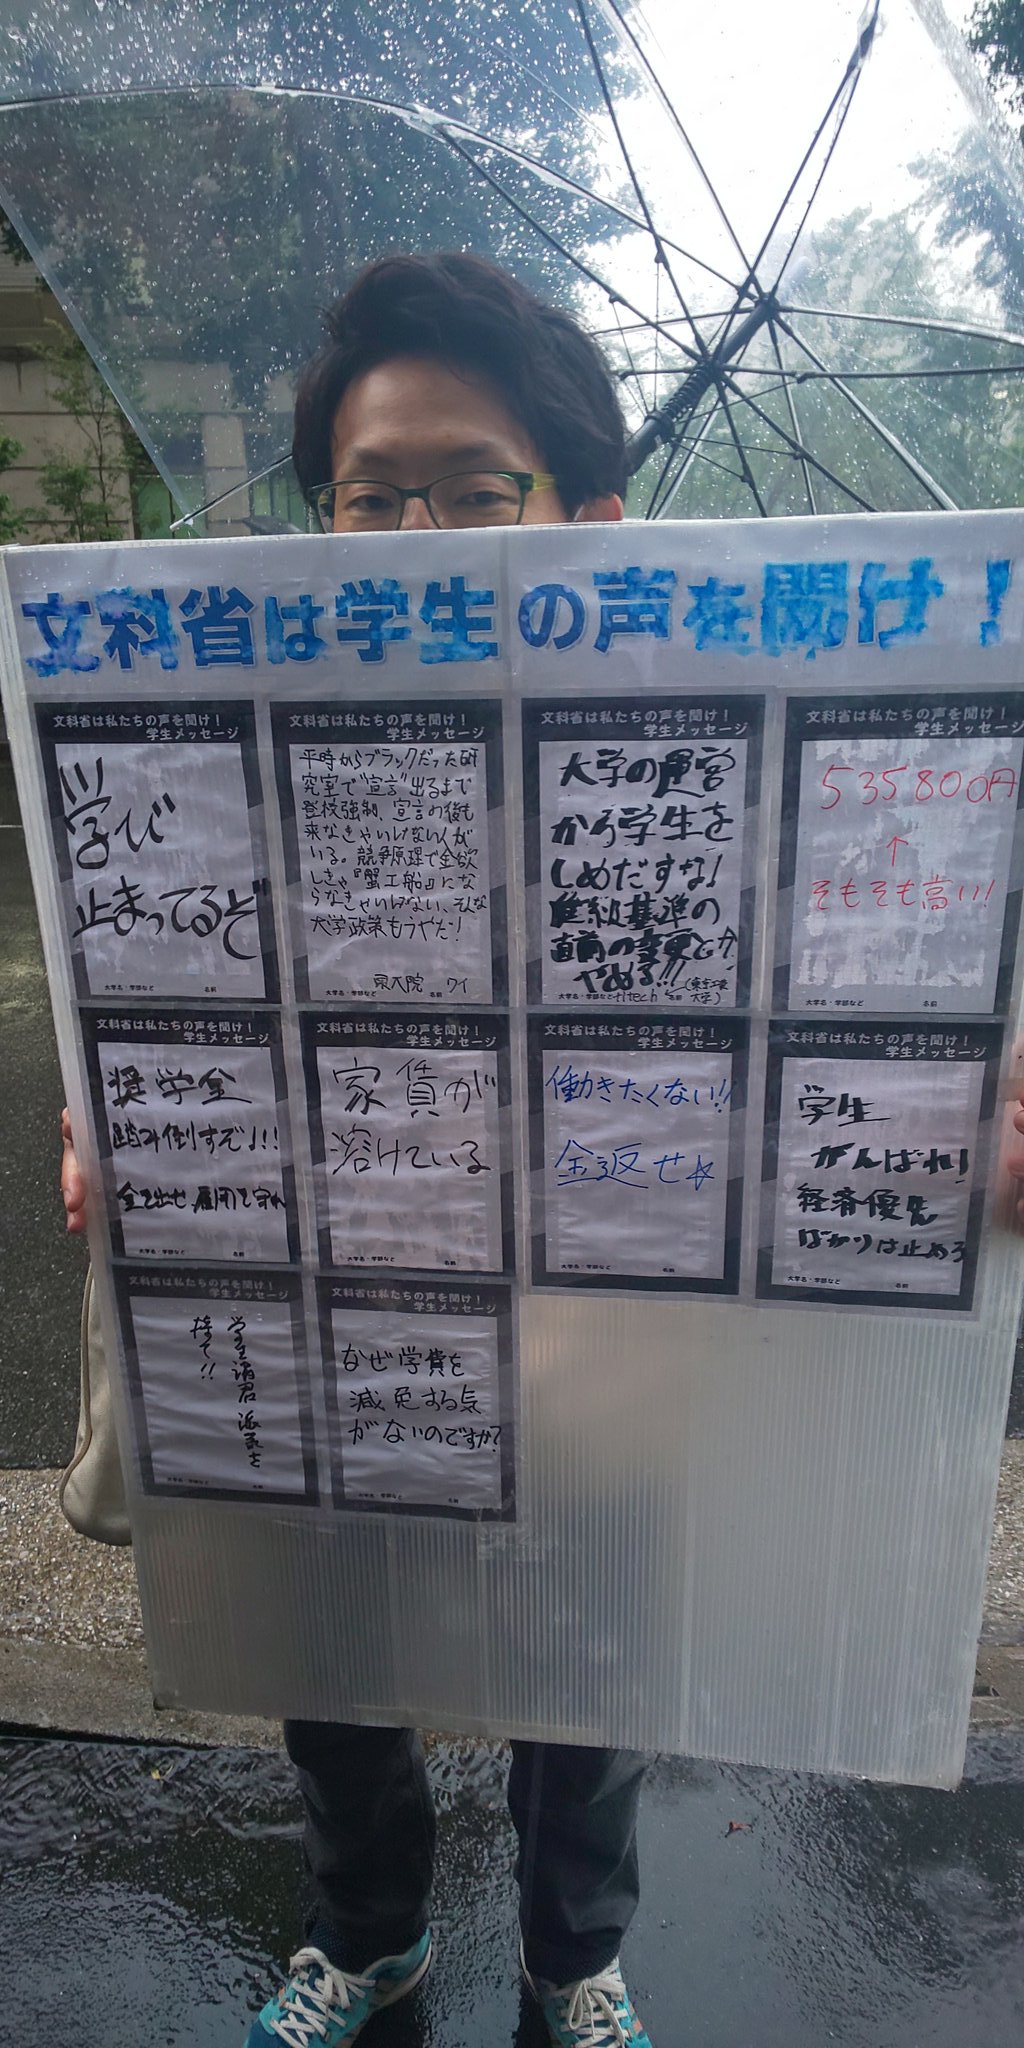 文科省は学生の声を聞け！
文科省は私たちの声を聞け！
学生メッセージ
学び
止まってるぞ
大学名・学部など 名前
文科省は私たちの声を聞け！
学生メッセージ
平時からブラックだった研
究室で"宣言"出るまで
登校強制、宣言の後も
来なきゃいけない人が
いる。競争原理で金欲
しきゃ『蟹工船』にな
らなきゃいけない、そんな
大学政策もうやだ！
東大院 ワイ
大学名・学部など 名前
文科省は私たちの声を聞け！
学生メッセージ
大学の運営
から学生を
しめだすな！
進級基準の
直前の変更とか
やめろ!!!
titech
(東京工業
大学)
大学名・学部など 名前
文科省は私たちの声を聞け！
学生メッセージ
535800円
↑
そもそも高い！
大学名・学部など 名前
文科省は私たちの声を聞け！
学生メッセージ
奨学金
踏み倒すぞ!!!
金を出せ 雇用を守れ
大学名・学部など 名前
文科省は私たちの声を聞け！
学生メッセージ
家賃が
溶けている
大学名・学部など 名前
文科省は私たちの声を聞け！
学生メッセージ
働きたくない!!
金返せ☆
大学名・学部など 名前
文科省は私たちの声を聞け！
学生メッセージ
学生
がんばれ！
経済優先
ばかりは止めろ
大学名・学部など 名前
文科省は私たちの声を聞け！
学生メッセージ
学生諸君
捨て!!
大学名・学部など 名前
文科省は私たちの声を聞け！
学生メッセージ
なぜ学費を
減免する気
がないのですか？
大学名・学部など 名前